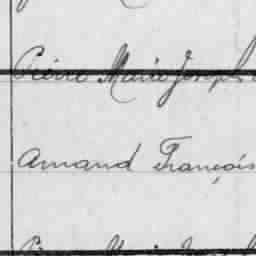 Pierre Marie Joseph
Armand François